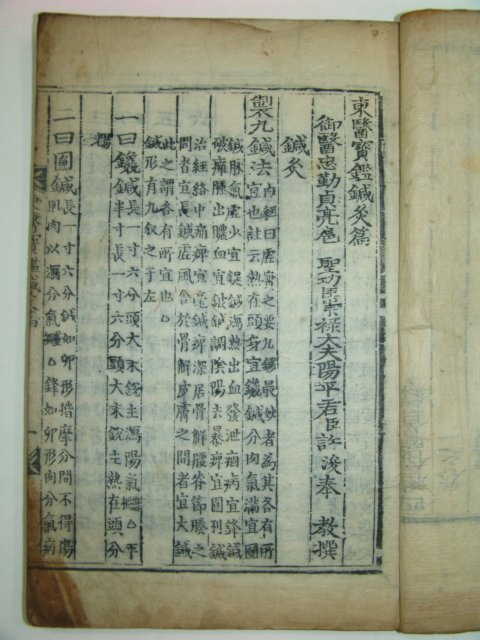 東醫寶鑑鍼灸篇
御醫忠勤貞亮扈 聖功臣崇祿大夫陽平君臣許浚奉 敎撰
鍼灸
製九鍼法 內經曰虛實之要九鍼最妙者為其各有所
宜也註云熱在頭身宜鑱鍼分肉氣滿宜圓
鍼脉氣虛少宜鍉鍼瀉熱出血發泄痼病宜鋒鍼
破癰腫出膿血宜鈹鍼調陰陽去暴痺宜圓利鍼
治經絡中痛痺宜毫鍼痺深居骨解腰脊節腠之
間者宜長鍼虛風舍於骨解皮膚之間者宜大鍼
此之謂各有所宜也○
鍼形有九叙之于左
一曰鑱鍼 長一寸六分頭大末銳瀉陽氣○平
半寸長一寸六分頭大末銳主熱在頭分
瘍
二曰圓鍼 長一寸六分鍼如卵形揩摩分間不得傷
肌肉以瀉分氣○鋒如卵形肉分氣病